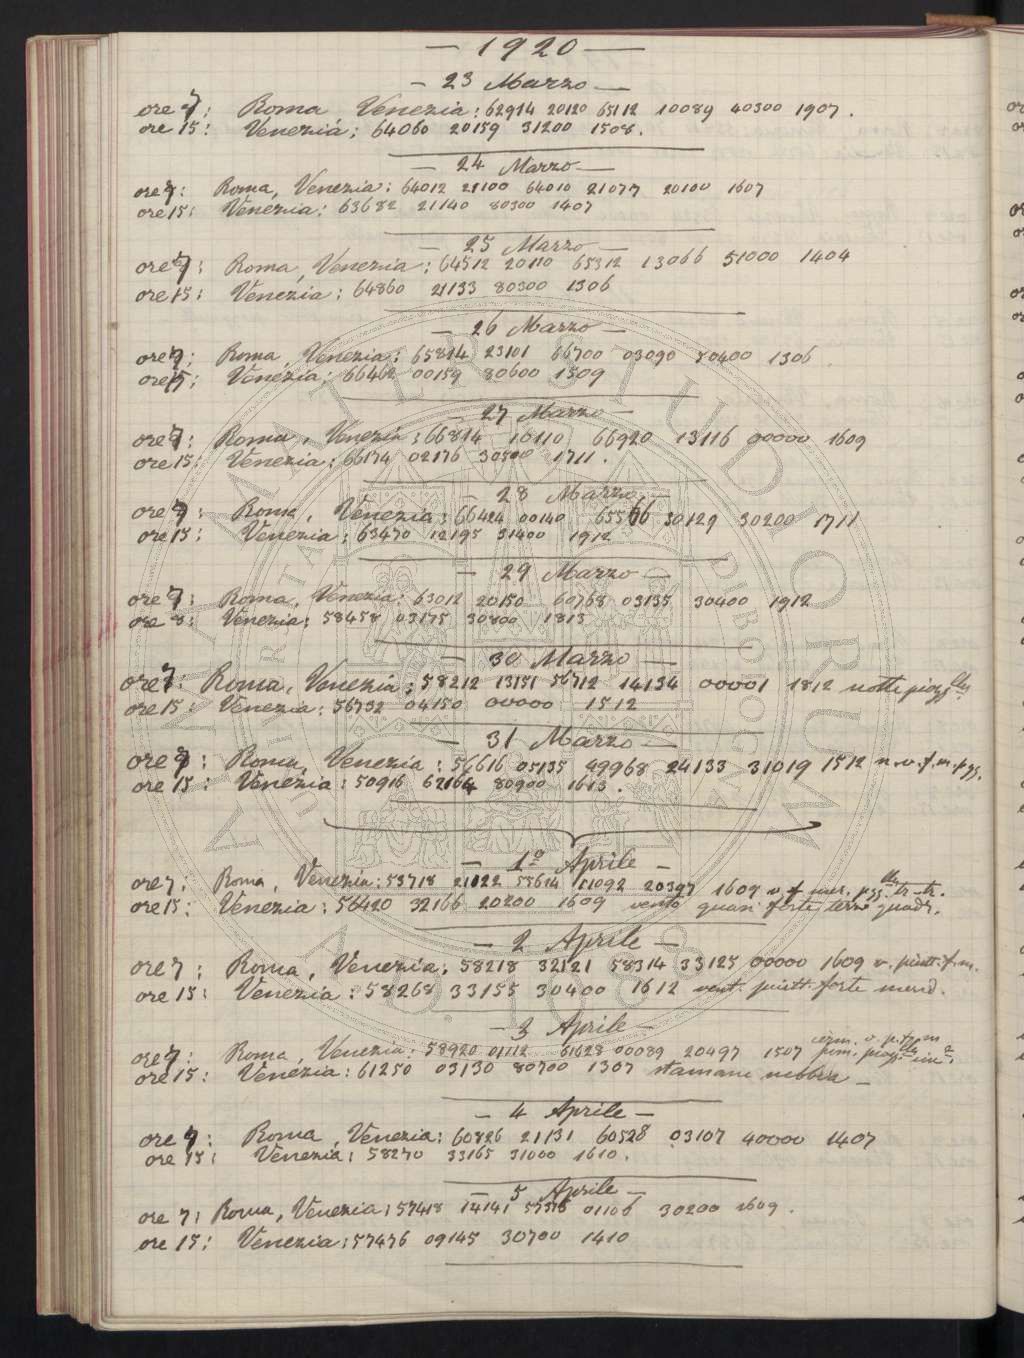 — 1920 —
— 23 Marzo —
ore 7: Roma Venezia: 62914 20120 65112 10089 40300 1907.
ore 15: Venezia: 64060 20159 31200 1508.
— 24 Marzo —
ore 7: Roma, Venezia: 64012 21100 64010 21077 20100 1607
ore 15: Venezia: 63682 21140 80300 1407
— 25 Marzo —
ore 7: Roma, Venezia: 64512 20110 65312 13066 51000 1404
ore 15: Venezia: 64860 21133 80300 1306
— 26 Marzo —
ore 7: Roma, Venezia: 65814 23101 66700 03090 80400 1306
ore 15: Venezia: 66462 00159 80600 1509
— 27 Marzo —
ore 7: Roma, Venezia: 66814 10110 66920 13116 00000 1609
ore 15: Venezia: 66174 02176 30500 1711.
— 28 Marzo —
ore 7: Roma, Venezia: 66424 00140 65566 30129 30200 1711
ore 15: Venezia: 63470 12195 31400 1912
— 29 Marzo —
ore 7: Roma, Venezia: 63012 20150 60768 03135 30400 1912
ore 8: Venezia: 58458 03175 30800 1813
— 30 Marzo —
ore 7: Roma, Venezia: 58212 13151 56712 14134 00001 1812 notte piogg
ore 15: Venezia: 56732 04150 00000 1512
— 31 Marzo —
ore 7: Roma, Venezia: 56616 05135 49968 24133 31019 1512 n.v.f.m.pgg.
ore 15: Venezia: 50916 62164 80900 1613.
— 1º Aprile —
ore 7: Roma, Venezia: 53718 21022 55614 11092 20397 1609 v. f. mer. pgg.
ore 15: Venezia: 56420 32166 20200 1609 vento quasi forte terzo quadr.
— 2 Aprile —
ore 7: Roma, Venezia: 58218 32121 58314 33125 00000 1609 v. piutt. f. m.
ore 15: Venezia: 58268 33155 30400 1612 vent. piutt. forte merid.
— 3 Aprile —
ore 7: Roma, Venezia: 58920 01112 61628 00089 20497 1507
ore 15: Venezia: 61250 03130 80700 1307 stamane nebbia —
— 4 Aprile —
ore 7: Roma, Venezia: 60826 21131 60528 03107 40000 1407
ore 15: Venezia: 58270 33165 31000 1610.
— 5 Aprile —
ore 7: Roma, Venezia: 57418 14141 57576 01106 30200 1609.
ore 15: Venezia: 57476 09145 30700 1410